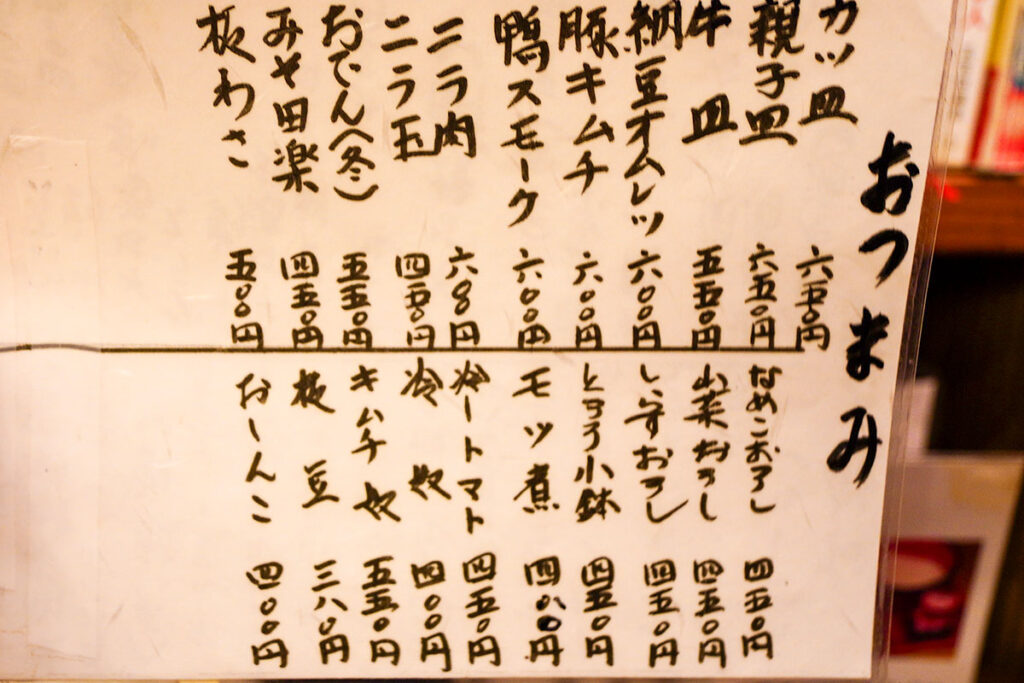 おつまみ
カツ皿 六五〇円
親子皿 六五〇円
牛皿 五五〇円
納豆オムレツ 六〇〇円
豚キムチ 六〇〇円
鴨スモーク 六〇〇円
ニラ肉 六〇〇円
ニラ玉 四五〇円
おでん(冬) 五五〇円
みそ田楽 四五〇円
板わさ 五〇〇円
なめこおろし 四五〇円
山菜おろし 四五〇円
しらすおろし 四五〇円
とろろ小鉢 四五〇円
モツ煮 四八〇円
冷しトマト 四五〇円
冷奴 四〇〇円
キムチ奴 五五〇円
枝豆 三八〇円
おしんこ 四〇〇円